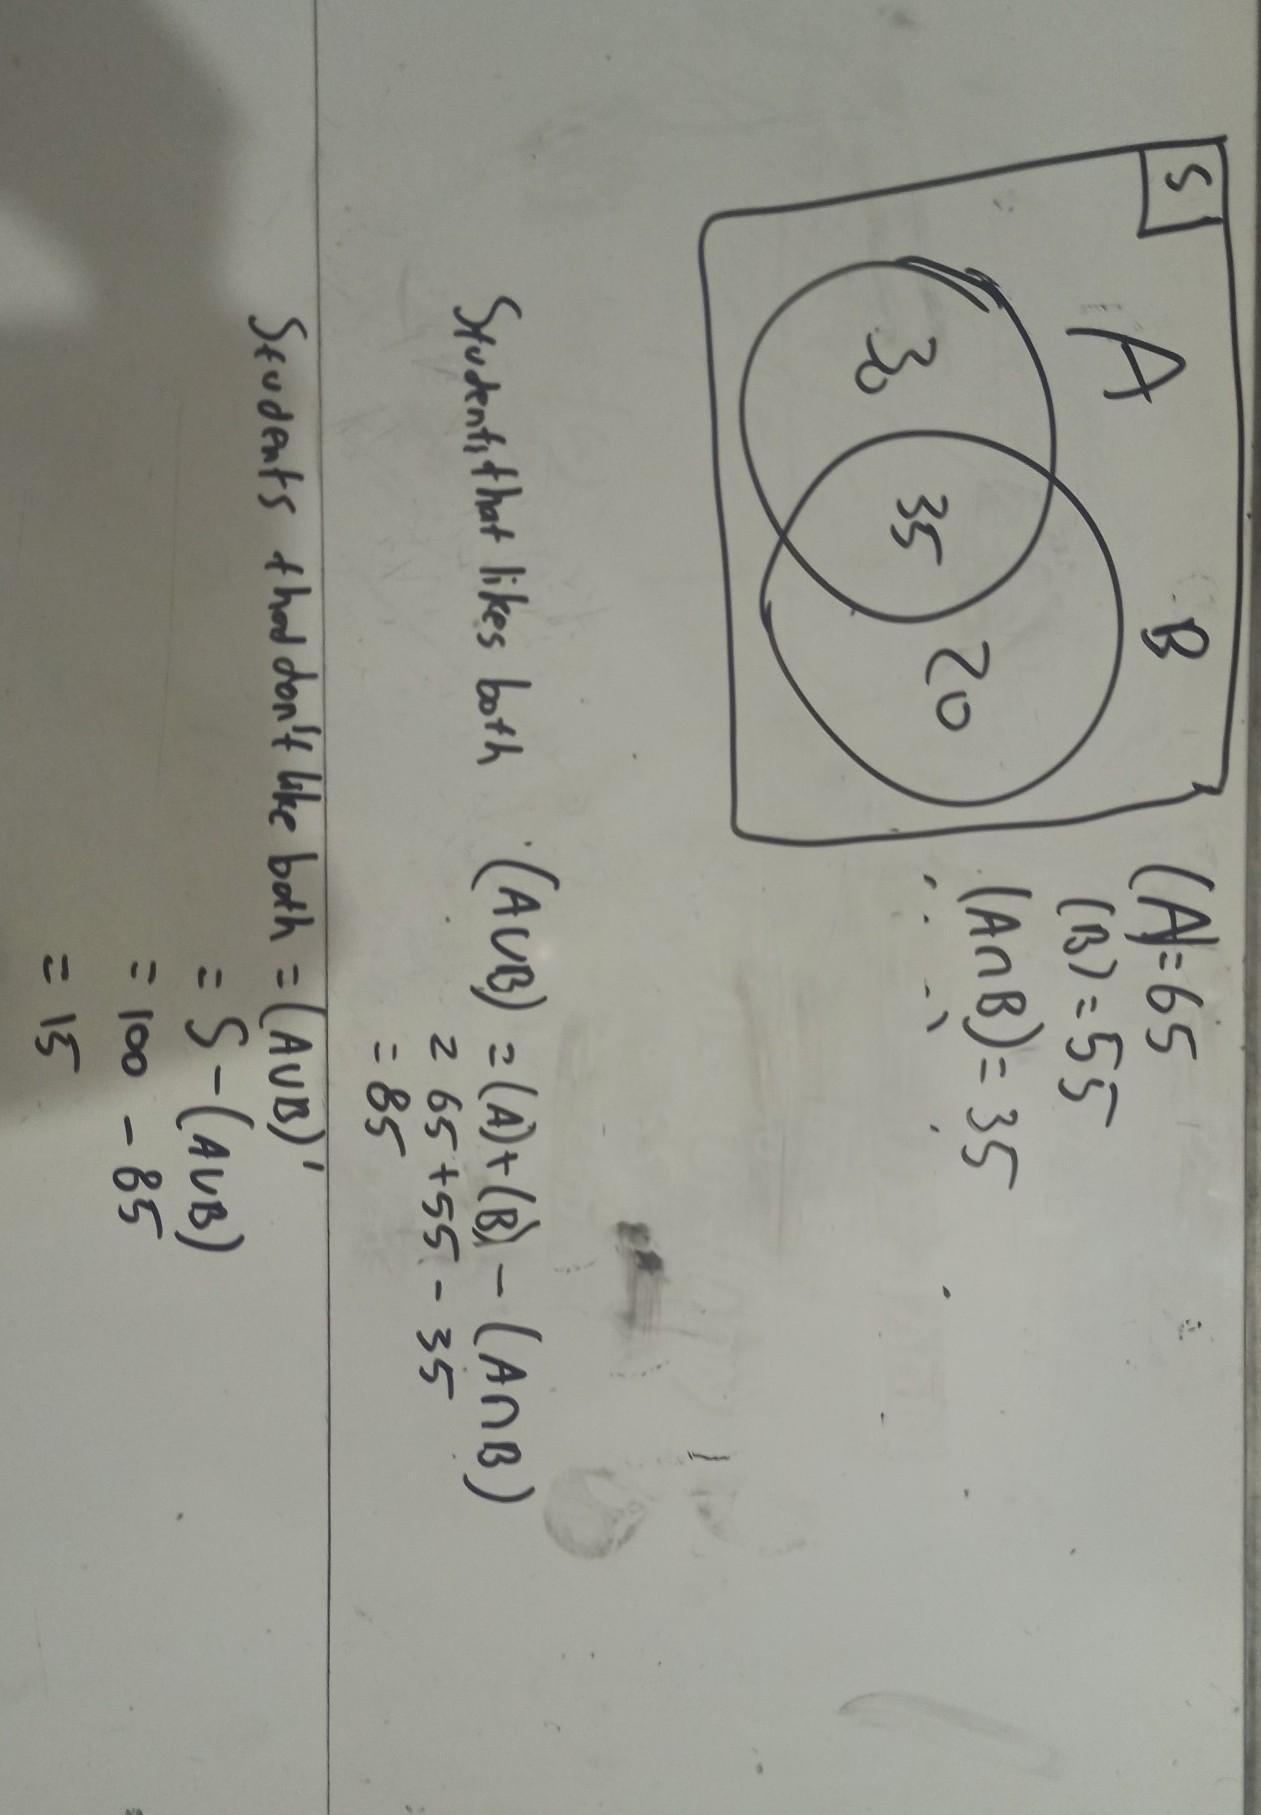 S
A
B
30
35
20
(A)=65
(B)=55
(A∩B)=35
Students that likes both (A∪B) =(A)+(B) - (A∩B)
= 65+55 - 35
= 85
Students that don't like both =(A∪B)'
= S-(A∪B)
= 100 - 85
= 15